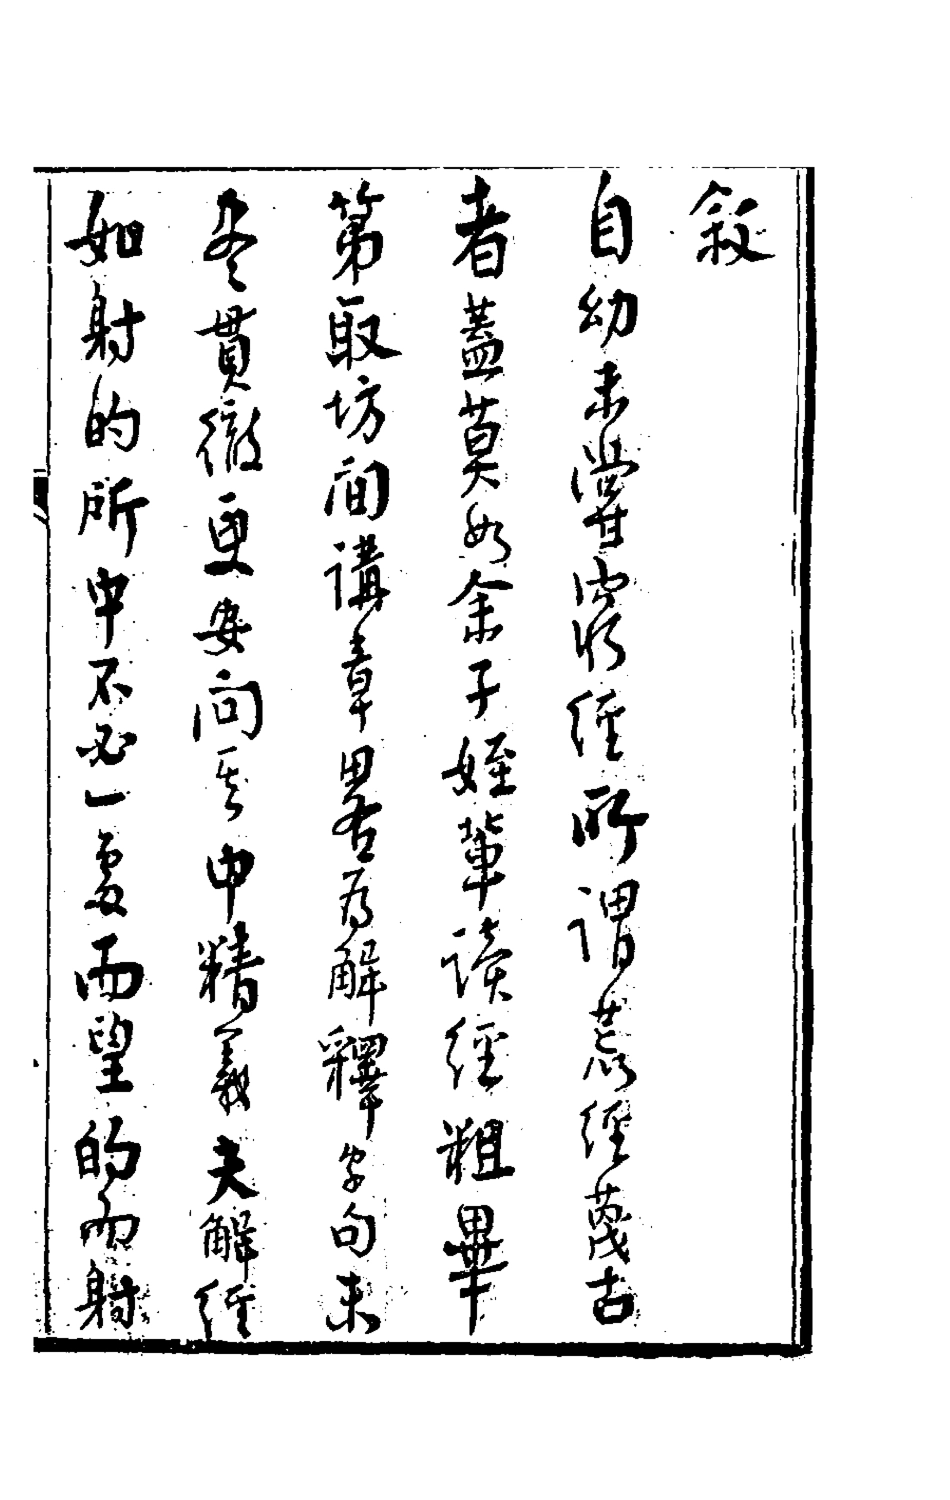 敘
自幼未嘗窮經所謂荒經蔑古
者蓋莫如余子姪輩讀經粗畢
第取坊間講章畧為解釋字句未
貫徹更安問其中精義夫解經
如射的所中不必一處而望的而射